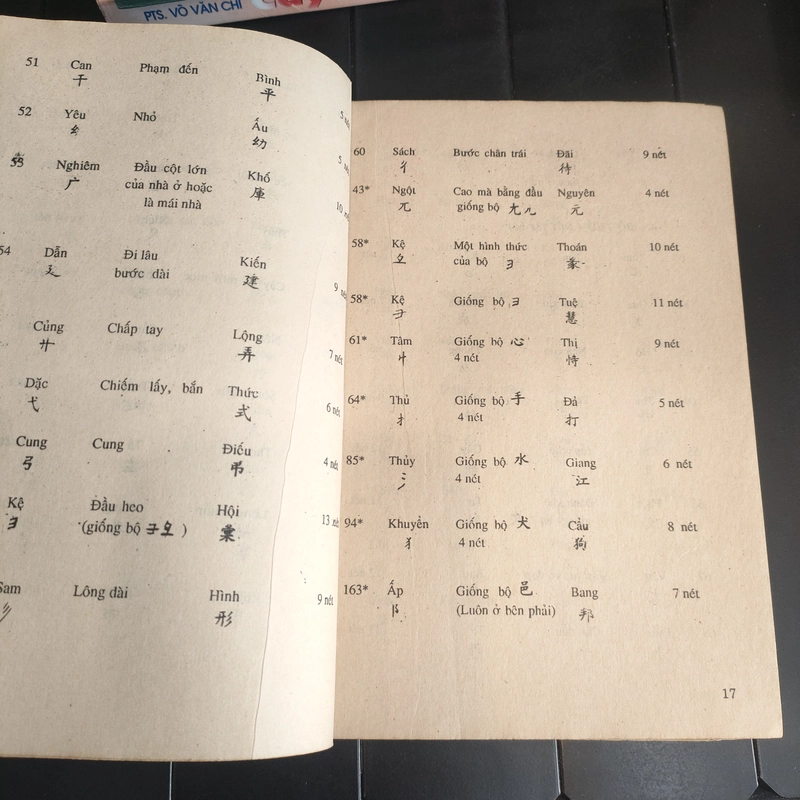 PTS. VÕ VĂN CHI
51 Can Phạm đến Bình 5 nét
干 平
52 Yêu Nhỏ Ấu 5 nét
幺 幼
53 Nghiêm Đầu cột lớn Khố 10 nét
广 của nhà ở hoặc 庫
là mái nhà
54 Dẫn Đi lâu Kiến 9 nét
廴 bước dài 建
Củng Chấp tay Lộng 7 nét
廾 弄
Dặc Chiếm lấy, bắn Thức 6 nét
弋 式
Cung Cung Điếu 4 nét
弓 弔
Kệ Đầu heo Hội 13 nét
彐 (giống bộ 彑)
Sam Lông dài Hình 9 nét
彡 形
60 Sách Bước chân trái Đãi 9 nét
彳 待
43* Ngột Cao mà bằng đầu Nguyên 4 nét
兀 giống bộ 尢 元
58* Kệ Một hình thức Thoán 10 nét
彑 của bộ ヨ 彖
58* Kệ Giống bộ ヨ Tuệ 11 nét
彐 慧
61* Tâm Giống bộ 心 Thị 9 nét
忄 4 nét 恃
64* Thủ Giống bộ 手 Đả 5 nét
扌 4 nét 打
85* Thủy Giống bộ 水 Giang 6 nét
氵 4 nét 江
94* Khuyển Giống bộ 犬 Cẩu 8 nét
犭 4 nét 狗
163* Ấp Giống bộ 邑 Bang 7 nét
阝 (Luôn ở bên phải) 邦
17